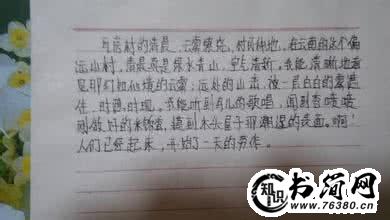 瓦房村的清晨，云雾缭绕，树茂林地，在云南的这个偏
远山村，清晨更是绿水青山，空气清新，我能清晰地看
见那幻如仙境的云雾；远处的山峦，被一层白白的雾遮
住，时隐时现，我能听到鸟儿的歌唱，闻到香喷喷
刚做好的米饭香，摸到木头房子那潮湿的表面。啊！
人们已经起床，开始了一天的劳作。
知识
书简网
www.76380.cn